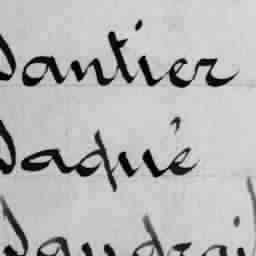 Dantier
Daqué